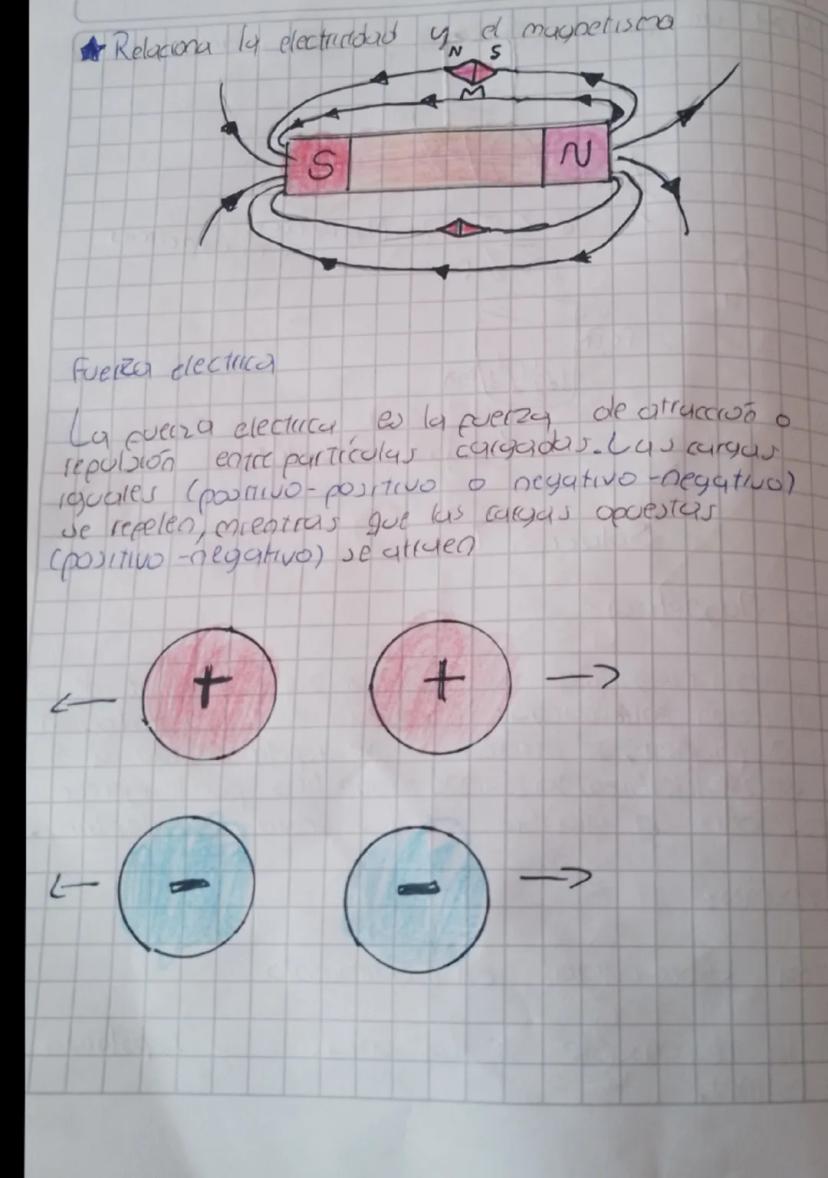 ★ Relaciona la electricidad y el magnetismo
N S
M
S N
Fuerza electrica
La fuerza electrica es la fuerza de atracción o
repulsión entre partículas cargadas. Las cargas
iguales (positivo-positivo o negativo-negativo)
se repelen, mientras que las cargas opuestas
(positivo-negativo) se atraen
+ +
- -